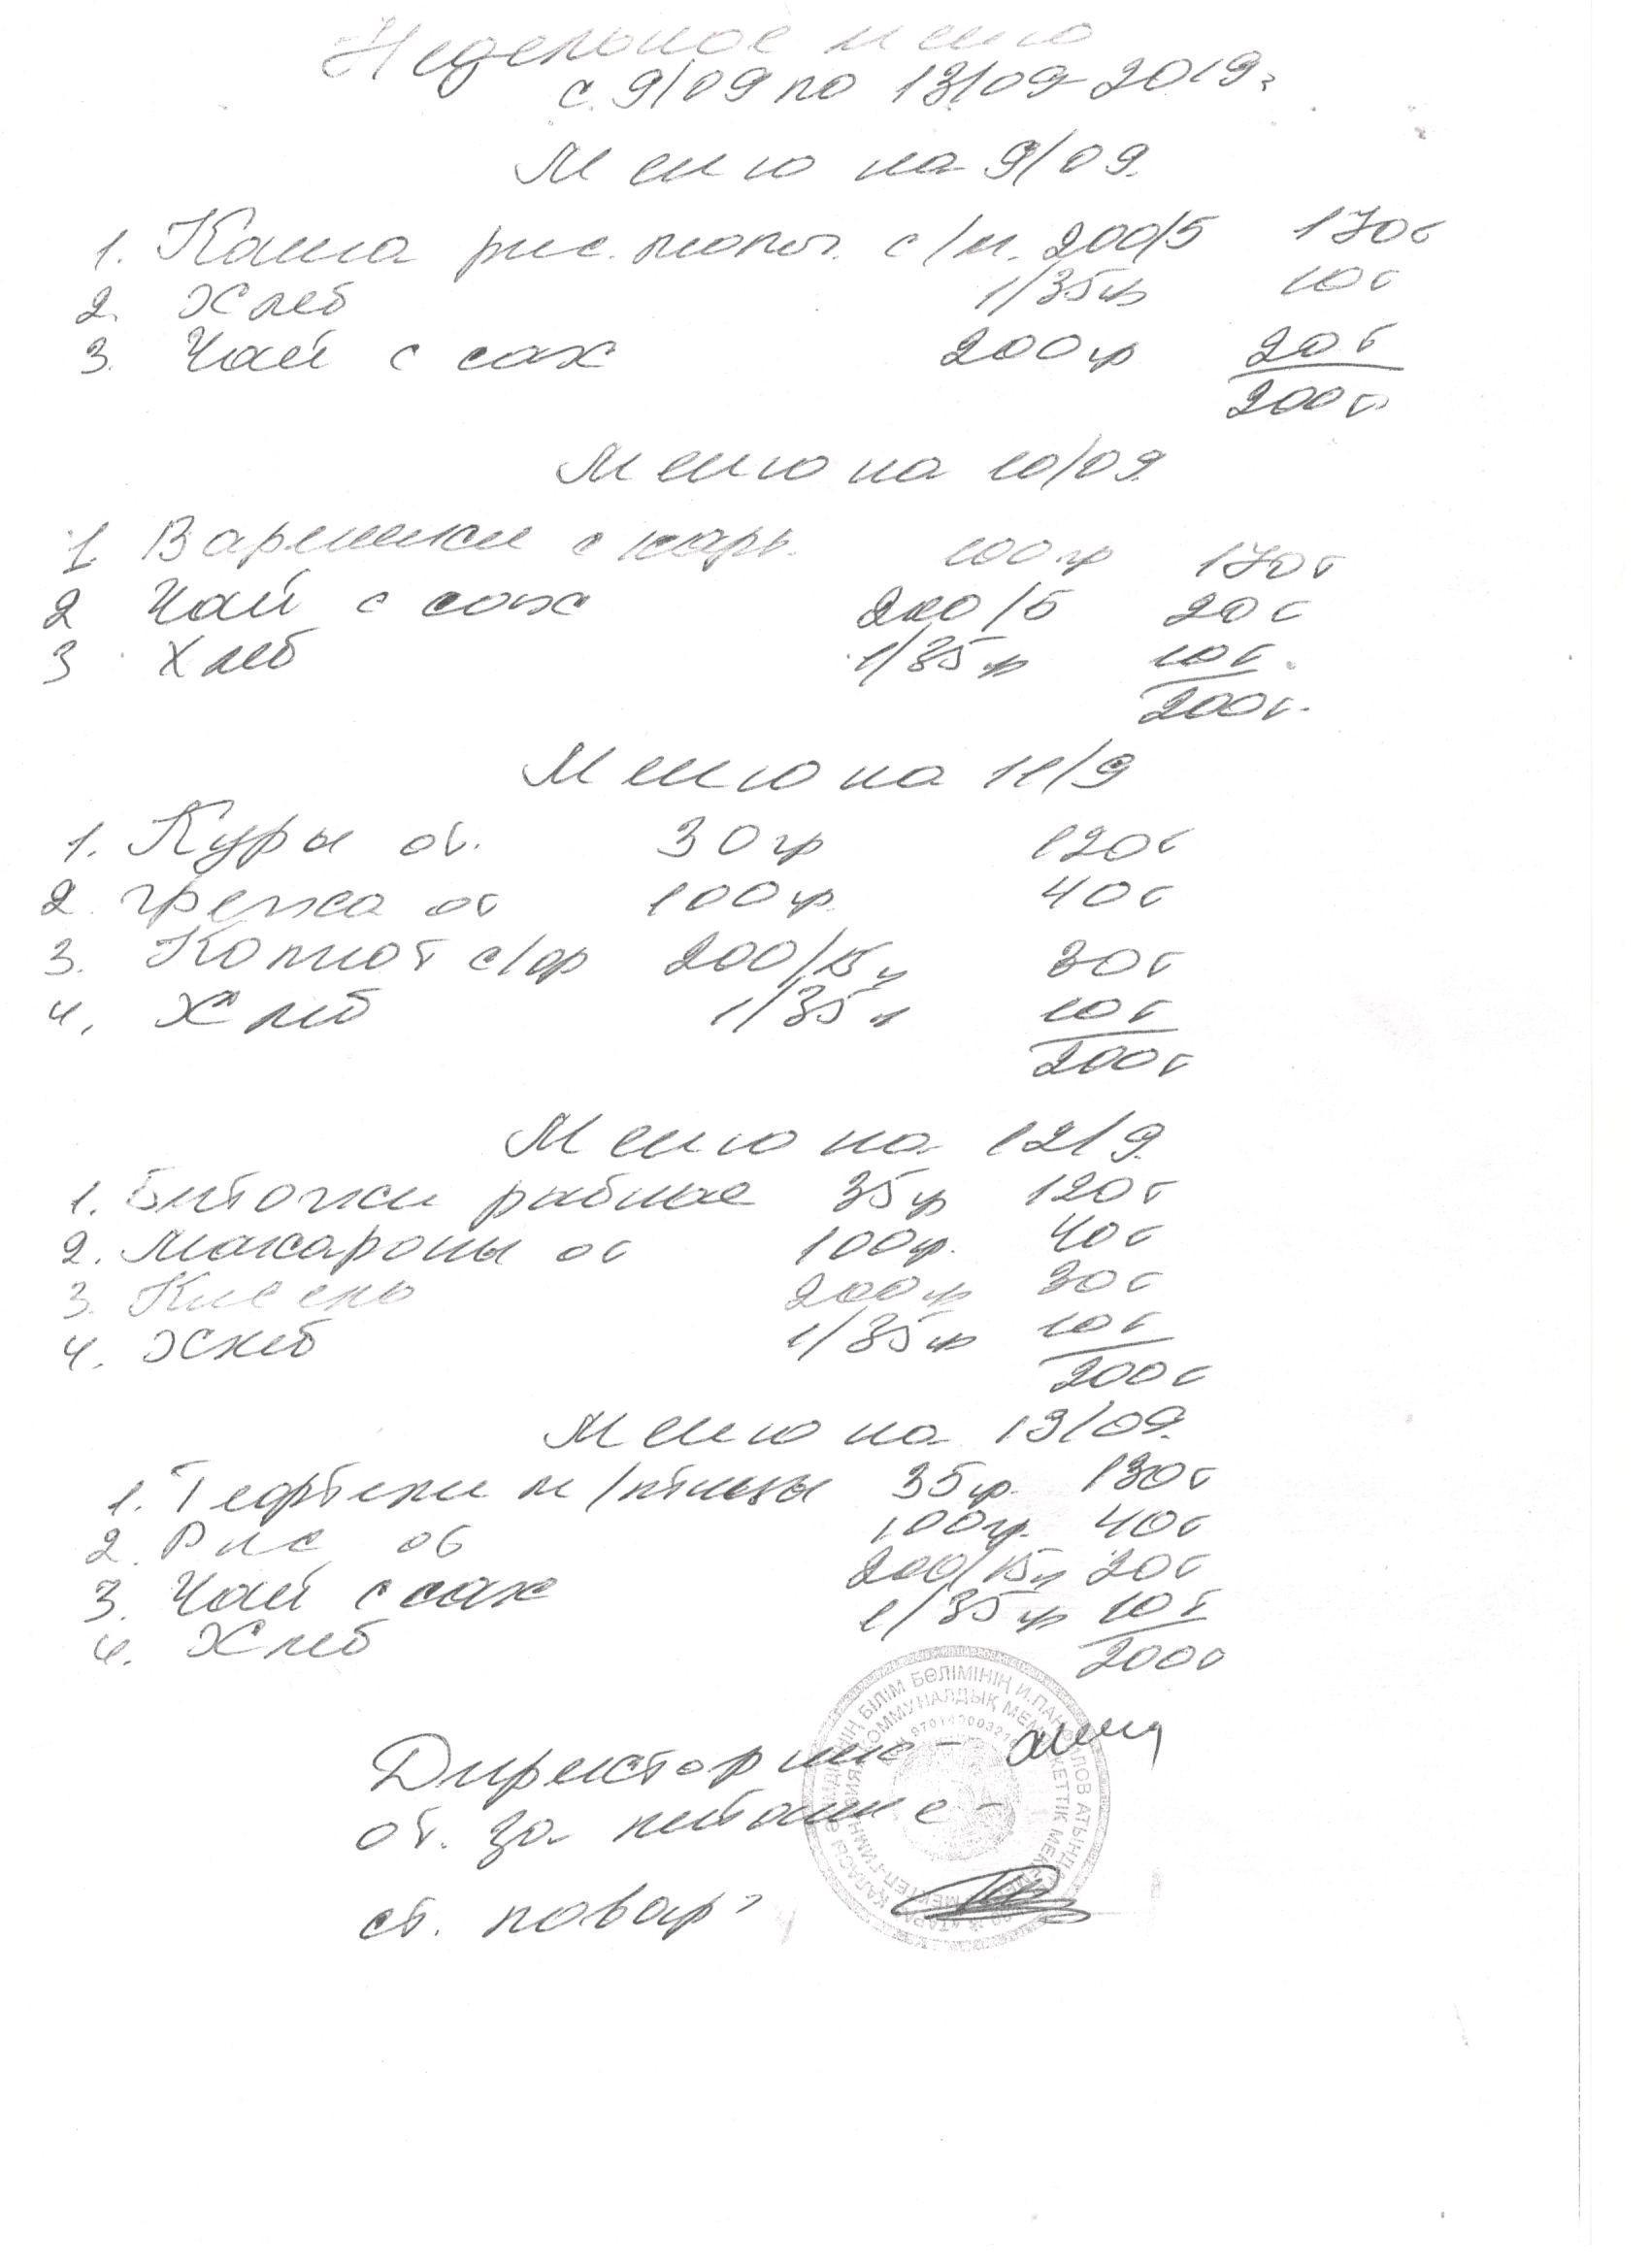 Недельное меню
с 9/09 по 13/09 2019г
Меню на 9/09.
1. Каша рис. молоч. с/м. 200/5 170т
2. Хлеб 1/35гр 10т
3. Чай с сах 200гр 20т
200т
Меню на 10/09.
1 Вареники с карт. 100гр 170т
2 Чай с сах 200/5 20т
3 Хлеб 1/35гр 10т.
200т.
Меню на 11/9
1. Куры от. 30гр 120т
2. Гречка от 100гр. 40т
3. Компот с/фр 200/15г 30т
4. Хлеб 1/35г 10т
200т
Меню на 12/9.
1. Биточки рыбные 35гр 120т
2. Макароны от 100гр. 40т
3. Кисель 200гр 30т
4. Хлеб 1/35гр 10т
200т
Меню на 13/09.
1. Тефтели м/птицы 35гр. 130т
2. Рис от 100гр. 40т
3. Чай с сах 200/15г 20т
4. Хлеб 1/35гр 10т
200т
Директор шк -
от. за питание -
ст. повар
БІЛІМ БӨЛІМІНІҢ И.ПАНФИЛОВ АТЫНДАҒЫ
КОММУНАЛДЫҚ МЕМЛЕКЕТТІК МЕКЕМЕСІ
МЕКТЕП-ГИМНАЗИЯ